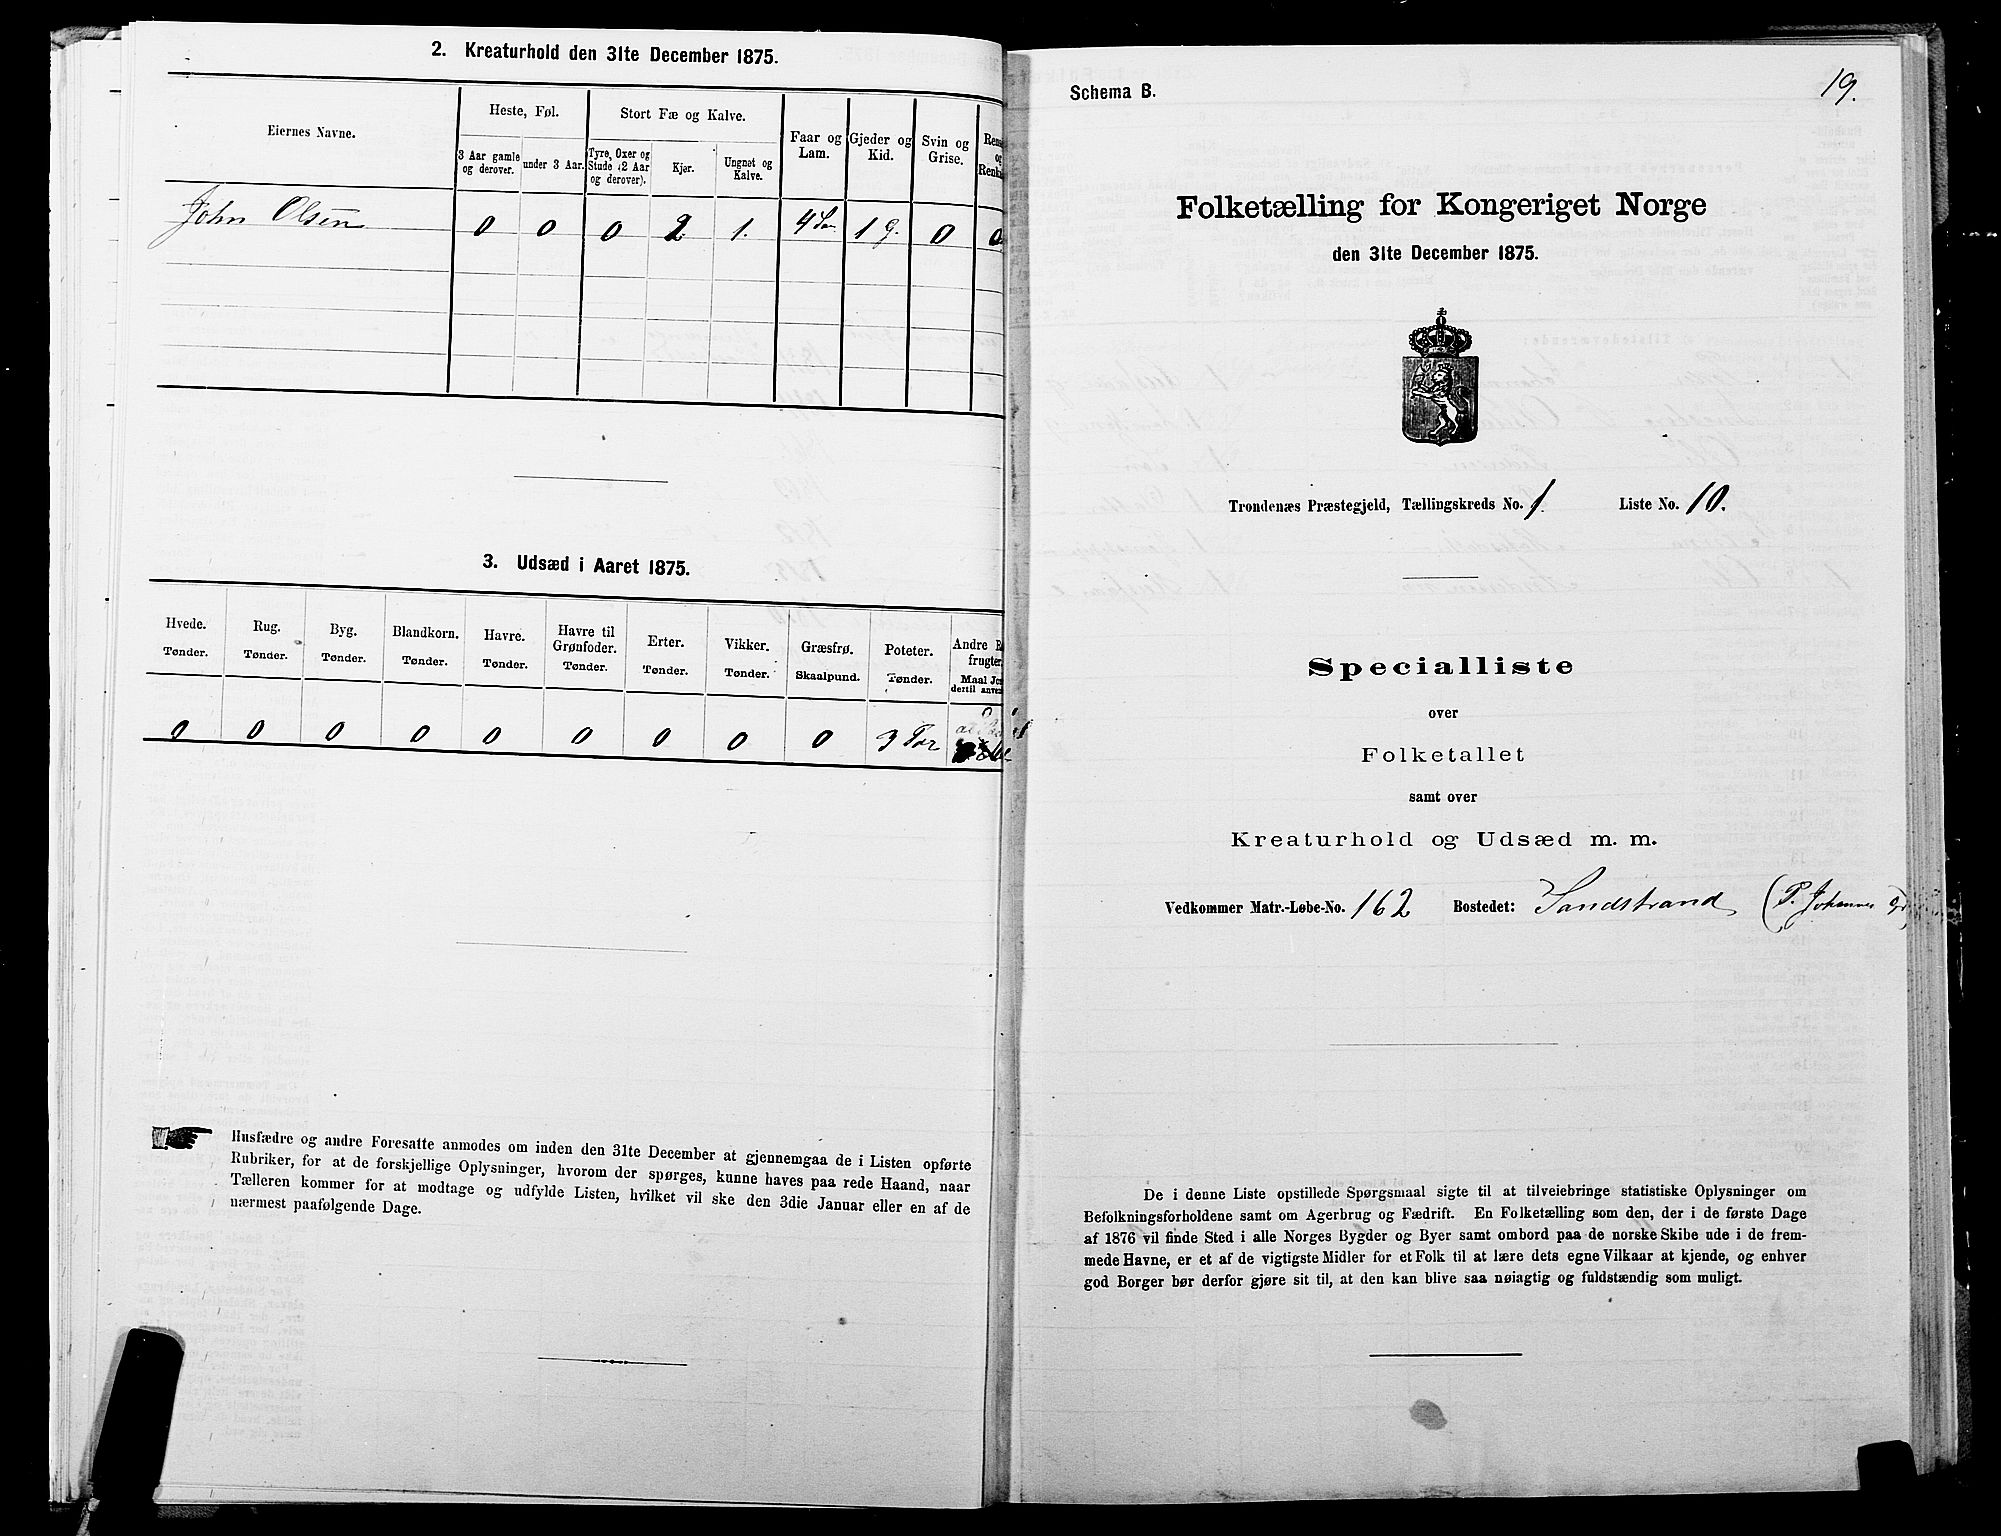 2. Kreaturhold den 31te December 1875.
Eiernes Navne.
Heste, Føl.
Stort Fæ og Kalve.
Faar og Lam.
Gjeder og Kid.
Svin og Grise.
3 Aar gamle og derover.
under 3 Aar.
Tyre, Oxer og Stude (2 Aar og derover).
Kjør.
Ungnøt og Kalve.
John Olsen 0 0 0 2 1. 4 1 g. 0 0
3. Udsæd i Aaret 1875.
Hvede. Rug. Byg. Blandkorn. Havre. Havre til Grønfoder. Erter. Vikker. Græsfrø. Poteter. Andre
Tønder. Tønder. Tønder. Tønder. Tønder. Tønder. Tønder. Tønder. Skaalpund. Tønder. Maal
0 0 0 0 0 0 0 0 0 3 Tdr
Husfædre og andre Foresatte anmodes om inden den 31te December at gjennemgaa de i Listen opførte
Rubriker, for at de forskjellige Oplysninger, hvorom der spørges, kunne haves paa rede Haand, naar
Tælleren kommer for at modtage og udfylde Listen, hvilket vil ske den 3die Januar eller en af de
nærmest paafølgende Dage.
19.
Schema B.
Folketælling for Kongeriget Norge
den 31te December 1875.
Trondenæs Præstegjeld, Tællingskreds No. 1. Liste No. 10.
Specialliste
over
Folketallet
samt over
Kreaturhold og Udsæd m. m.
Vedkommer Matr.-Løbe-No. 162 Bostedet: Sandstrand (P. Johannes
De i denne Liste opstillede Spørgsmaal sigte til at tilveiebringe statistiske Oplysninger om
Befolkningsforholdene samt om Agerbrug og Fædrift. En Folketælling som den, der i de første Dage
af 1876 vil finde Sted i alle Norges Bygder og Byer samt ombord paa de norske Skibe ude i de frem-
mede Havne, er et af de vigtigste Midler for et Folk til at lære dets egne Vilkaar at kjende, og enhver
god Borger bør derfor gjøre sit til, at den kan blive saa nøiagtig og fuldstændig som muligt.